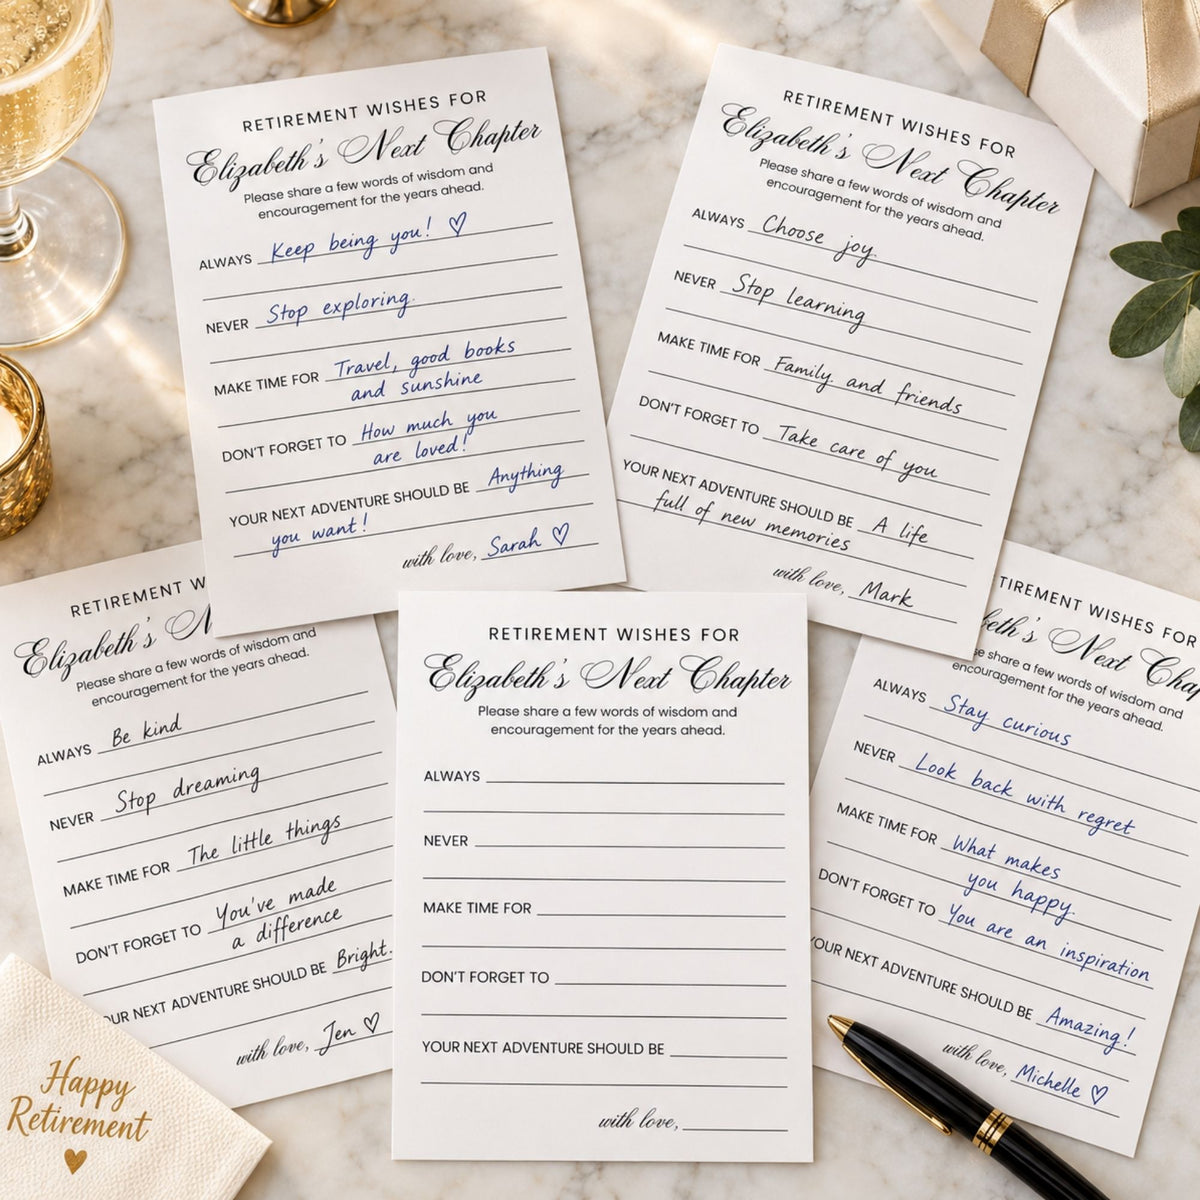 RETIREMENT WISHES FOR
Elizabeth's Next Chapter
Please share a few words of wisdom and
encouragement for the years ahead.
ALWAYS Keep being you! ♡
NEVER Stop exploring.
MAKE TIME FOR Travel, good books
and sunshine
DON'T FORGET TO How much you
are loved!
YOUR NEXT ADVENTURE SHOULD BE Anything
you want!
with love, Sarah ♡
RETIREMENT WISHES FOR
Elizabeth's Next Chapter
Please share a few words of wisdom and
encouragement for the years ahead.
ALWAYS Choose joy.
NEVER Stop learning
MAKE TIME FOR Family. and friends
DON'T FORGET TO Take care of you
YOUR NEXT ADVENTURE SHOULD BE A life
full of new memories
with love, Mark
RETIREMENT W
Elizabeth's N
Please share a few words of wisdom and
encouragement for the years ahead.
ALWAYS Be kind
NEVER Stop dreaming
MAKE TIME FOR The little things
DON'T FORGET TO You've made
a difference
OUR NEXT ADVENTURE SHOULD BE Bright.
with love, Jen ♡
RETIREMENT WISHES FOR
Elizabeth's Next Chapter
Please share a few words of wisdom and
encouragement for the years ahead.
ALWAYS
NEVER
MAKE TIME FOR
DON'T FORGET TO
YOUR NEXT ADVENTURE SHOULD BE
with love,
TIREMENT WISHES FOR
beth's Next Chap
se share a few words of wisdom and
encouragement for the years ahead.
ALWAYS Stay curious
NEVER Look back with regret
MAKE TIME FOR What makes
you happy.
DON'T FORGET TO You are an inspiration
OUR NEXT ADVENTURE SHOULD BE Amazing!
with love, Michelle ♡
Happy
Retirement